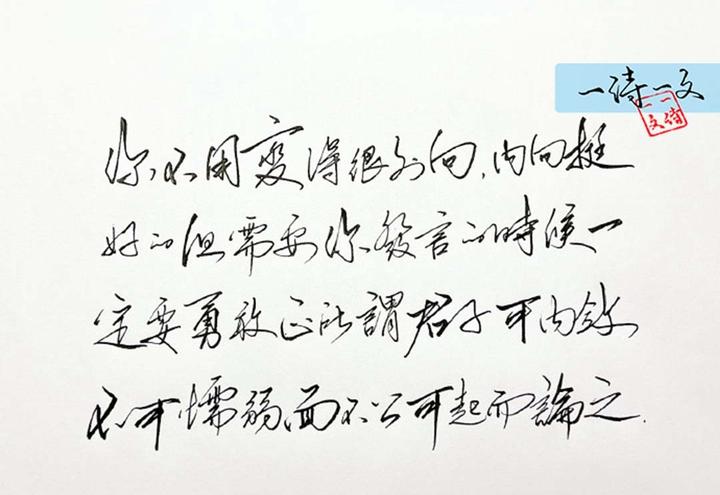 一诗一文
一诗一文
你不用變得很外向,内向挺
好的但需要你發言的時候一
定要勇敢正所謂君子可内斂
不可懦弱面不公可起而論之.